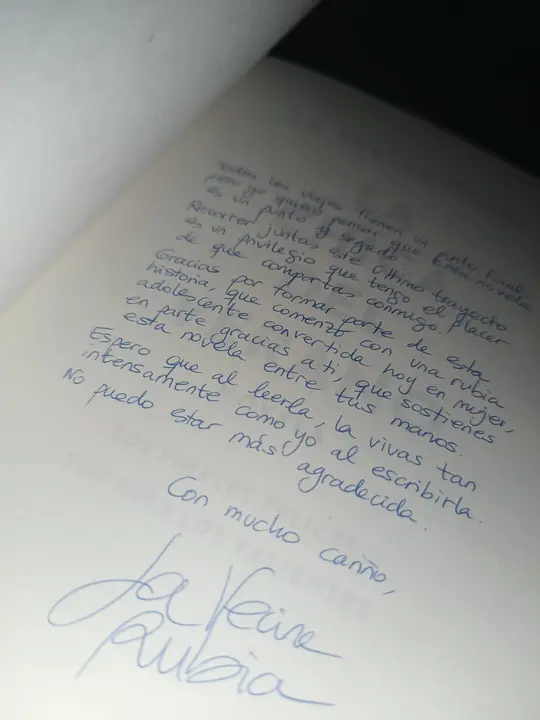 Todos los viajes tienen un punto final
pero yo quiero pensar que esta novela
es un punto y seguido.
Recorrer juntas este último trayecto
es un privilegio que tengo el placer
de que compartas conmigo.
Gracias por formar parte de esta
historia, que comenzó con una rubia
adolescente convertida hoy en mujer,
en parte gracias a ti, que sostienes
esta novela entre tus manos.
Espero que al leerla, la vivas tan
intensamente como yo al escribirla.
No puedo estar más agradecida.
Con mucho cariño,
La Vecina
Rubia